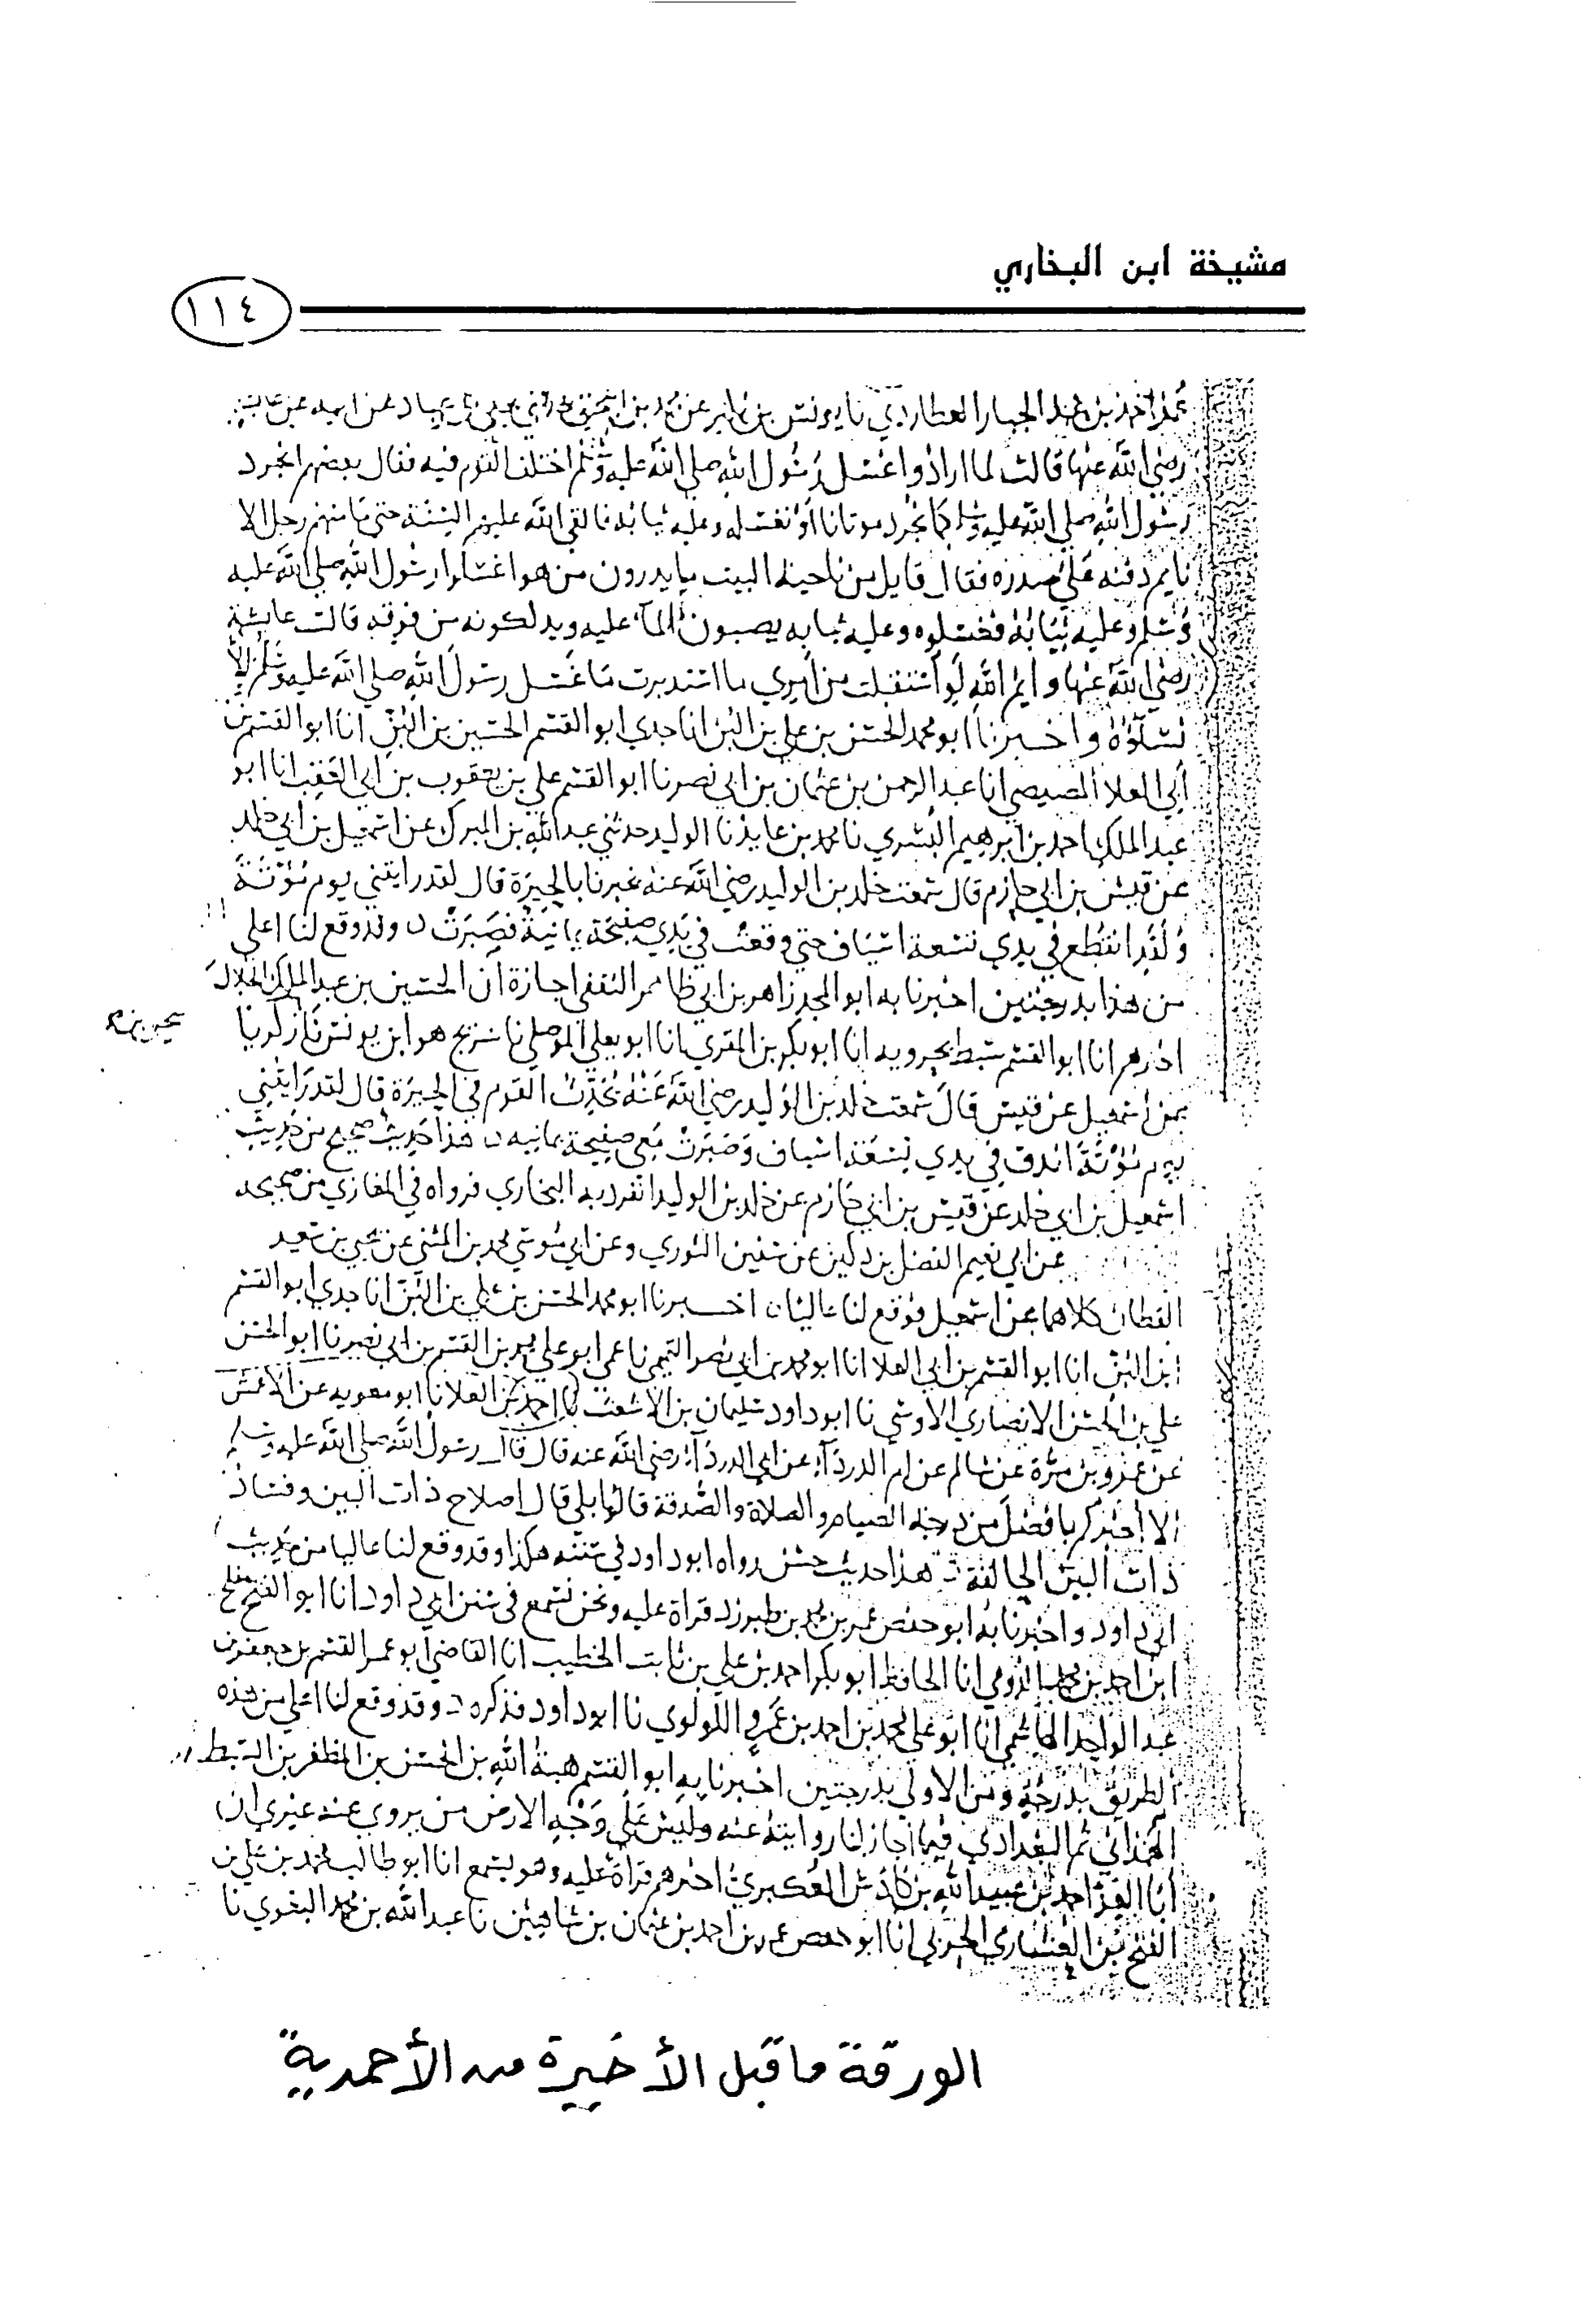 مشيخة ابن البخاري
١١٤
احمد بن عبد الجبار العطاردي نا يونس بن بكير عن محمد بن اسحق عن ابيه عن عائشة
رضي الله عنها قالت لما ارادوا غسل رسول الله صلى الله عليه وسلم اختلف القوم فيه فقال بعضهم انجرد
رسول الله صلى الله عليه وسلم كما نجرد موتانا او نغسله وعليه ثيابه فالقى الله عليهم السنة حتى ما منهم رجل الا
نايم دقنه على صدره فقال قايل من ناحية البيت ما يدرون من هو اغسلوا رسول الله صلى الله عليه
وسلم وعليه ثيابه فغسلوه وعليه ثيابه يصبون الماء عليه ويدلكونه من فوقه قالت عائشة
رضي الله عنها وايم الله لو استقبلت من امري ما استدبرت ما غسل رسول الله صلى الله عليه وسلم الا
نساؤه واخبرنا ابو محمد الحسن بن علي بن البن انا جدي ابو القسم الحسين بن البن انا ابو القسم بن
ابي العلا المصيصي انا عبد الرحمن بن عثمان بن ابي نصر نا ابو القسم علي بن يعقوب بن ابي العقب انا ابو
عبد الملك احمد بن ابرهيم البسري نا محمد بن عايذ نا الوليد حدثني عبد الله بن المبرك عن اسمعيل بن ابي خلد
عن قيس بن ابي حازم قال سمعت خلد بن الوليد رضي الله عنه يخبرنا بالحيرة قال لقد رايتني يوم مؤتة
ولقد انقطع في يدي تسعة اسياف حتى وقعت في يدي صفيحة يمانية فصبرت ن وقد وقع لنا اعلى
من هذا بدرجتين اخبرنا به ابو المجد زاهر بن ابي طاهر الثقفي اجازة ان الحسين بن عبد الملك الخلال
اخبرهم انا ابو القسم سبط بحرويه انا ابو بكر بن المقري انا ابو يعلى الموصلي نا سريج هو ابن يونس نا زكريا
يحيى بن
عن اسمعيل عن قيس قال سمعت خلد بن الوليد رضي الله عنه يحدث القوم في الحيرة قال لقد رايتني
يوم مؤتة اندق في يدي تسعة اسياف وصبرت معي صفيحة يمانيه ن هذا حديث صحيح من حديث
اسمعيل بن ابي خلد عن قيس بن ابي حازم عن خلد بن الوليد انفرد به البخاري فرواه في المغازي من صحيحه
عن ابي نعيم الفضل بن دكين عن سفين الثوري وعن ابي موسى محمد بن المثنى عن يحيى بن سعيد
القطان كلاهما عن اسمعيل فوقع لنا عاليا ن اخبرنا ابو محمد الحسن بن علي بن البن انا جدي ابو القسم
ابن البن انا ابو القسم بن ابي العلا انا ابو محمد بن ابي نصر التميمي نا عمي ابو علي محمد بن القسم بن ابي نصر نا ابو الحسن
علي بن الحسن الانصاري الاوسي نا ابو داود سليمان بن الاشعث نا العلا نا ابو معويه عن الاعمش
عن عمرو بن مرة عن سالم عن ام الدرداء عن ابي الدرداء رضي الله عنه قال قال رسول الله صلى الله عليه وسلم
الا اخبركم بافضل من درجة الصيام والصلاة والصدقة قالوا بلى قال اصلاح ذات البين وفساد
ذات البين الحالقة هذا حديث حسن رواه ابو داود في سننه هكذا وقد وقع لنا عاليا من حديث
ابي داود واخبرنا به ابو حفص عمر بن محمد بن طبرزد قراة عليه ونحن نسمع في سنن ابي داود انا ابو الفتح مفلح
ابن احمد بن محمد الدومي انا الحافظ ابو بكر احمد بن علي بن ثابت الخطيب انا القاضي ابو عمر القسم بن جعفر بن
عبد الواحد الهاشمي انا ابو علي محمد بن احمد بن عمرو اللولوي نا ابو داود فذكره ن وقد وقع لنا اعلى من هذه
الطريق بدرجة ومن الاولى بدرجتين اخبرنا به ابو القسم هبة الله بن الحسن بن المظفر بن السبط
الهمذاني ثم البغدادي فيما اجاز لنا روايته عنه وليس على وجه الارض من يروي عنه غيري ان
ابا العز احمد بن عبيد الله بن كادش العكبري اخبرهم قراة عليه وهو يسمع انا ابو طالب محمد بن علي بن
الفتح بن العشاري الحربي انا ابو حفص عمر بن احمد بن عثمان بن شاهين نا عبد الله بن محمد البغوي نا
الورقة ما قبل الأخيرة من الأحمدية